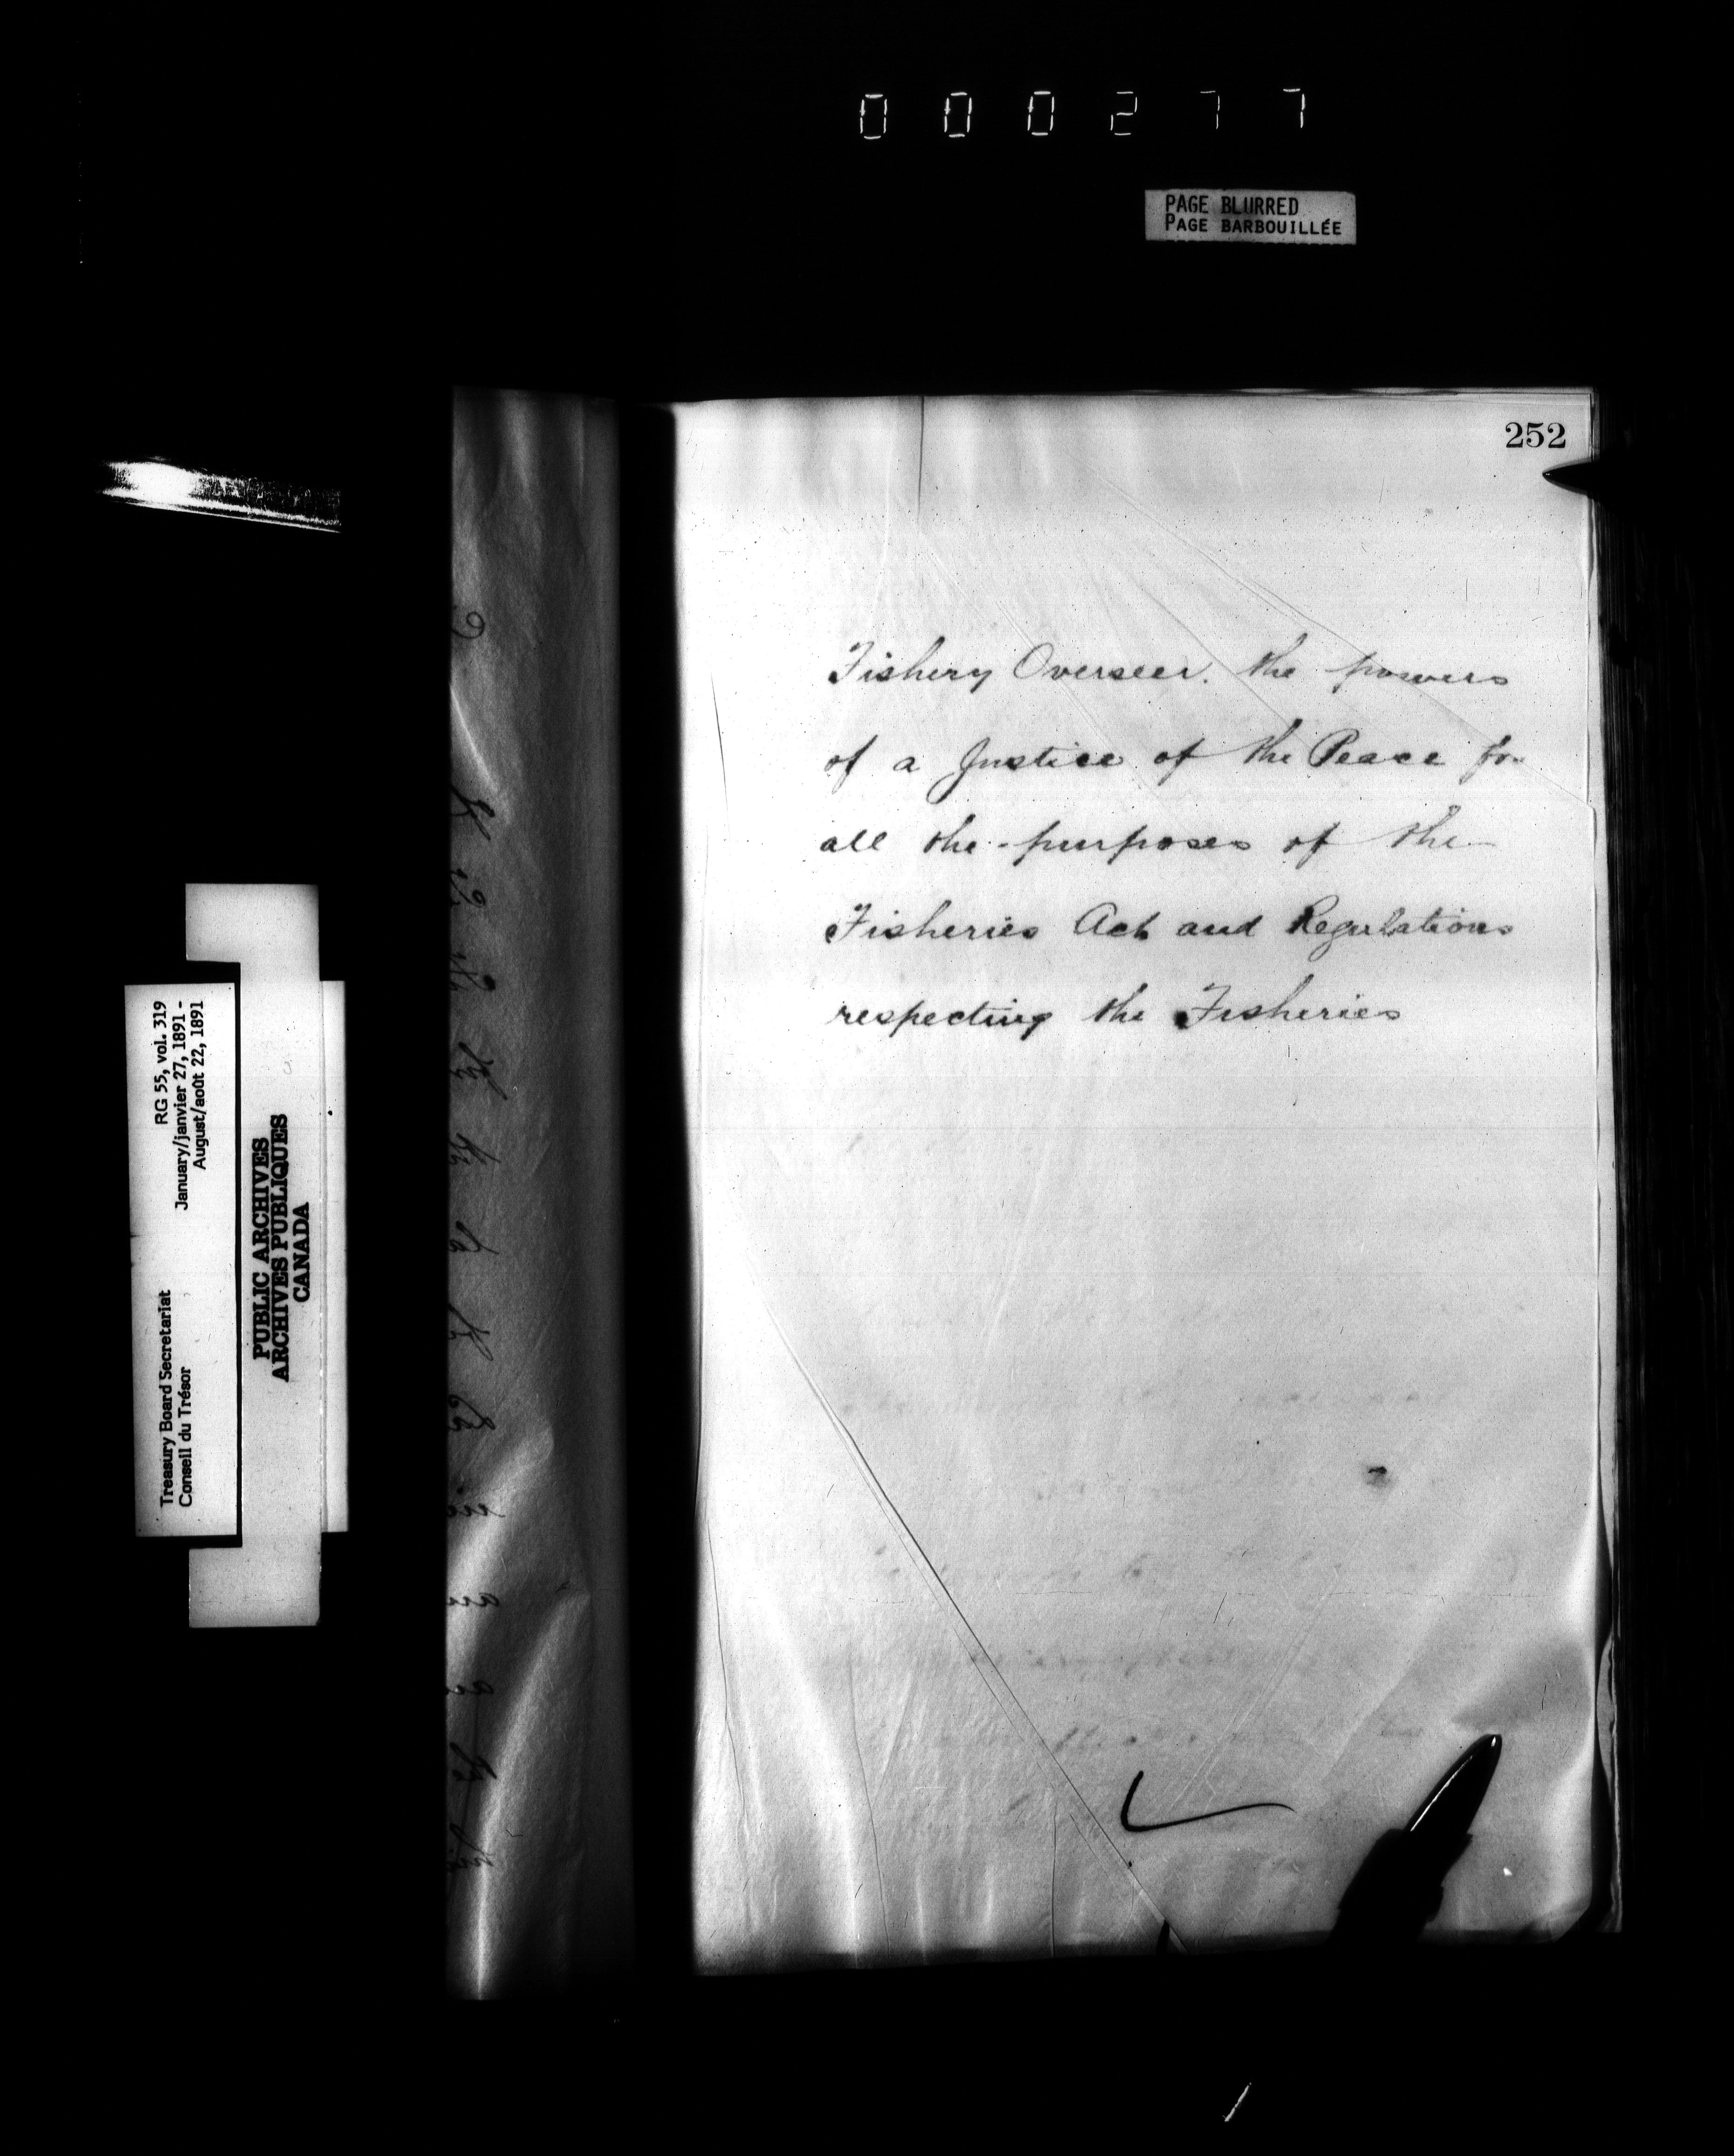 000277
PAGE BLURRED
PAGE BARBOUILLÉE
252
Fishery Overseer. the powers
of a Justice of the Peace for
all the purposes of the
Fisheries Act and Regulations
respecting the Fisheries
RG 55, vol. 319
January/janvier 27, 1891 -
August/août 22, 1891
Treasury Board Secretariat
Conseil du Trésor
PUBLIC ARCHIVES
ARCHIVES PUBLIQUES
CANADA